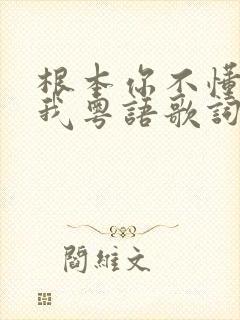 根本你不懂
我粵語歌詞
閻維文